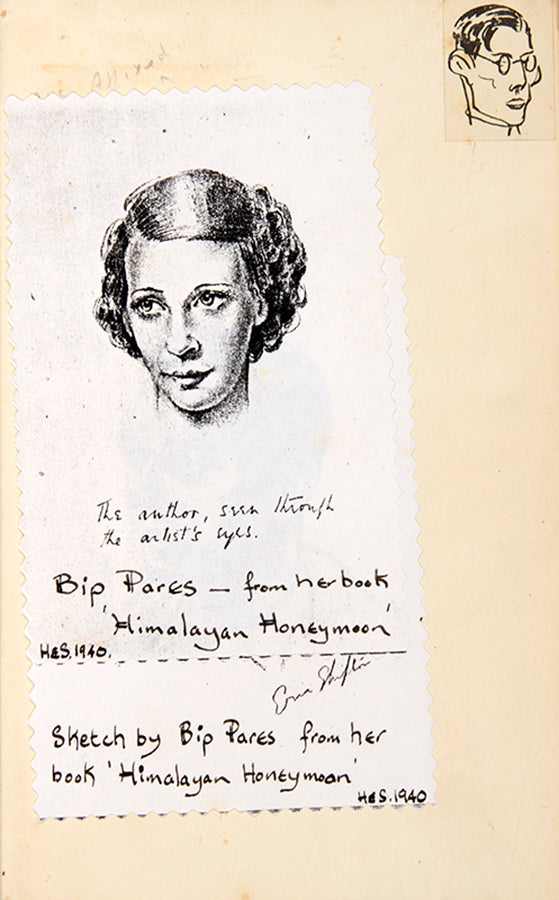 Affixed
The author, seen through
the artist's eyes.
Bip Pares – from her book
'Himalayan Honeymoon'
H&S.1940.
Sketch by Bip Pares from her
book 'Himalayan Honeymoon'
H&S.1940